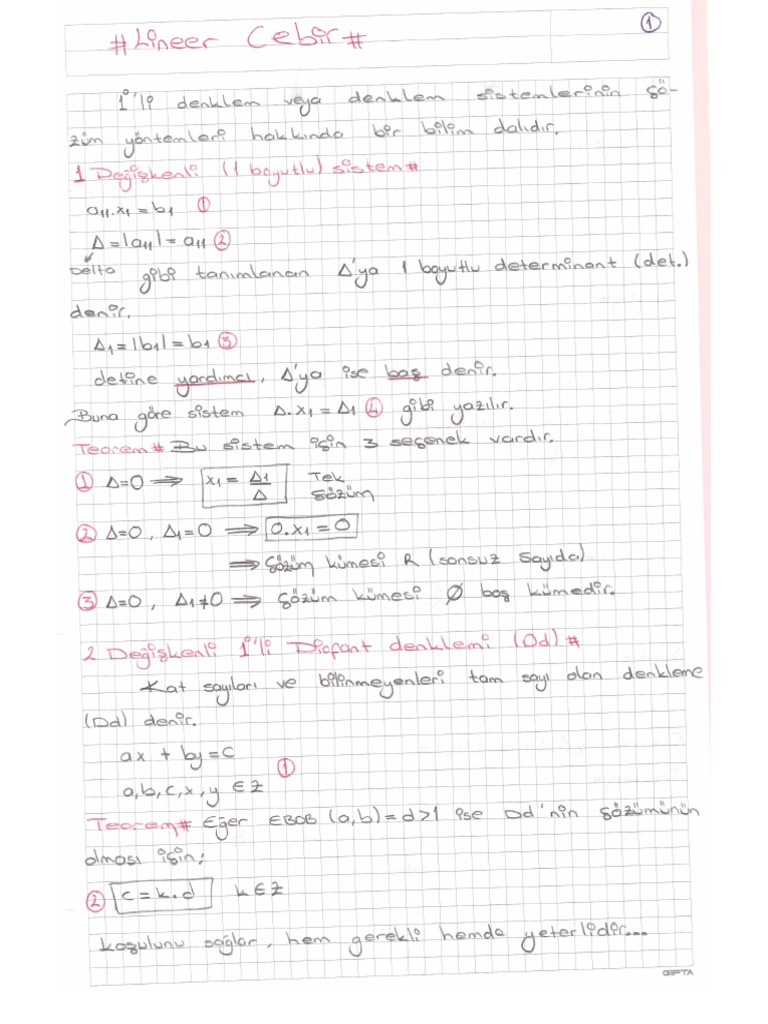 #Lineer Cebir#
1
1°'li denklem veya denklem sistemlerinin çö-
züm yöntemleri hakkında bir bilim dalıdır.
1 Değişkenli (1 boyutlu) sistem#
a₁₁.x₁=b₁ ①
Δ=|a₁₁|=a₁₁ ②
Delta gibi tanımlanan Δ'ya 1 boyutlu determinant (det.)
denir.
Δ₁=|b₁|=b₁ ③
detine yardımcı, Δ'ya ise baş denir.
Buna göre sistem Δ.x₁=Δ₁ ④ gibi yazılır.
Teorem# Bu sistem için 3 seçenek vardır.
① Δ=0 ⟹ x₁=Δ₁/Δ Tek
çözüm
② Δ=0, Δ₁=0 ⟹ 0.x₁=0
⟹ çözüm kümesi R (sonsuz sayıda)
③ Δ=0, Δ₁≠0 ⟹ çözüm kümesi Ø boş kümedir.
2 Değişkenli 1°'li Diofant denklemi (Dd)#
Kat sayıları ve bilinmeyenleri tam sayı olan denkleme
(Dd) denir.
ax + by=c
①
a,b,c,x,y ∈Z
Teorem# Eğer EBOB (a,b)=d>1 ise Dd'nin çözümünün
olması için;
② c=k.d k∈Z
koşulunu sağlar, hem gerekli hemde yeterlidir...
GIPTA